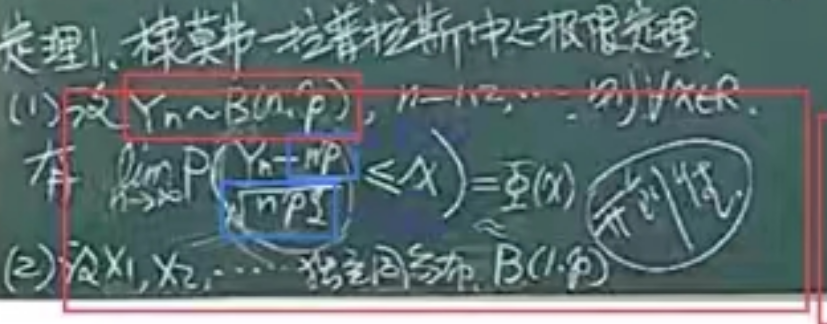 定理1. 棣莫弗-拉普拉斯中心极限定理.
(1) 设 Yn~B(n.p), n=1,2,…. 则∀x∈R.
有 lim n→∞ P((Yn-np)/√npq ≤x)=Φ(x)
(2)设X1,X2,……独立同分布, B(1.p)